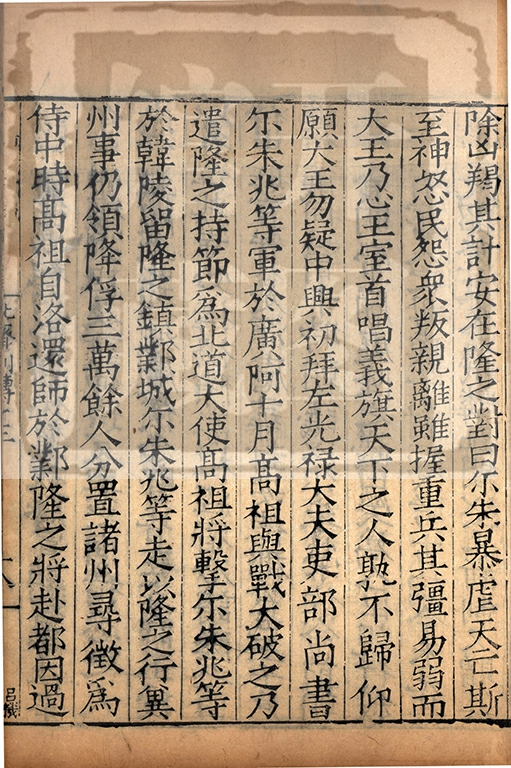 除凶羯其計安在隆之對曰尒朱暴虐天亡斯
至神怒民怨衆叛親離雖握重兵其彊易弱而
大王乃心王室首唱義旗天下之人孰不歸仰
願大王勿疑中興初拜左光禄大夫吏部尚書
尒朱兆等軍於廣阿十月髙祖與戰大破之乃
遣隆之持節爲北道大使髙祖將擊尒朱兆等
於韓陵留隆之鎮鄴城尒朱兆等走以隆之行兾
州事仍領降俘三萬餘人分置諸州尋徵爲
侍中時髙祖自洛還師於鄴隆之將赴都因過